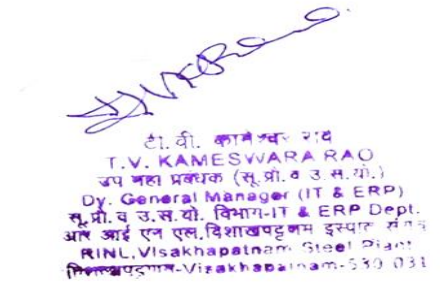 टी. वी. कामेश्वर राव
T.V. KAMESWARA RAO
उप महा प्रबंधक (सू.प्रौ.व उ.स.यो.)
Dy. General Manager (IT & ERP)
सू.प्रौ.व उ.स.यो. विभाग-IT & ERP Dept.
आर आई एन एल,विशाखपट्टणम इस्पात संयंत्र
RINL,Visakhapatnam Steel Plant
विशाखपट्टणम-Visakhapatnam-530 031